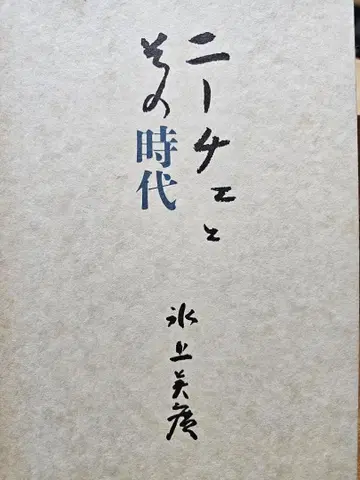 ニーチェと
その時代
氷上英廣